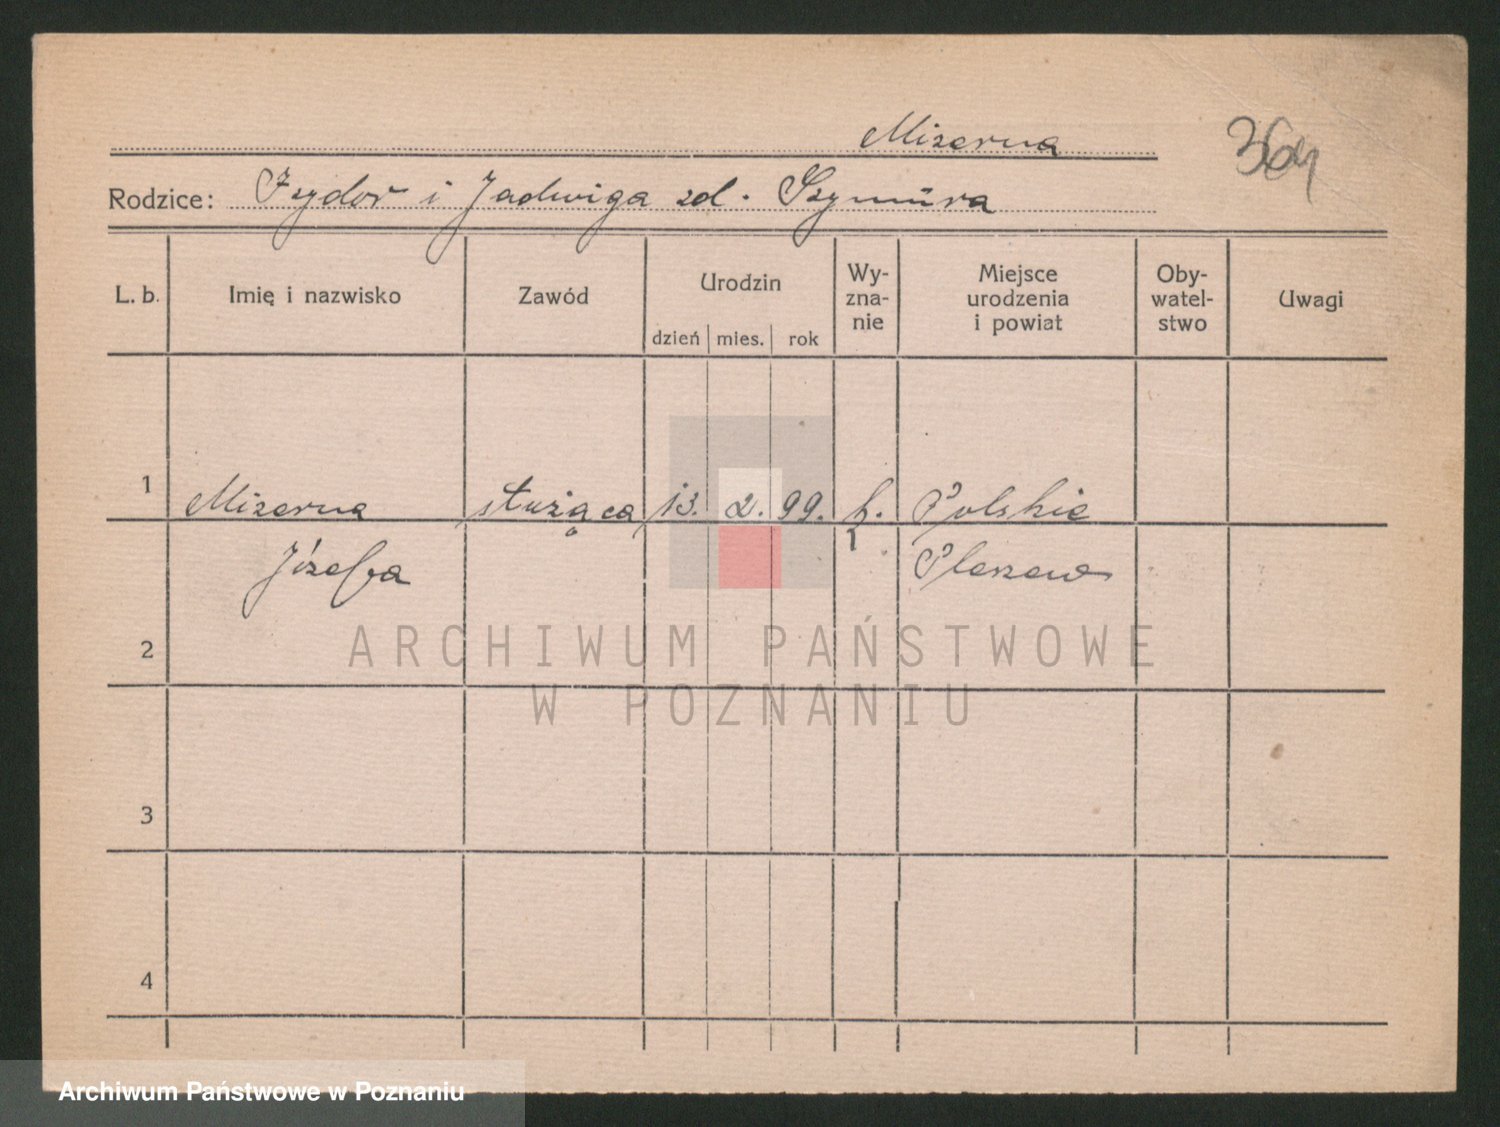 Mizerna
364
Rodzice: Izydor i Jadwiga zd. Szymura
L. b. Imię i nazwisko Zawód Urodzin dzień mies. rok Wy-zna-nie Miejsce urodzenia i powiat Oby-watel-stwo Uwagi
1 Mizerna służąca 13. 2. 99. k. Polskie
Józefa Pleszew
2
ARCHIWUM PAŃSTWOWE
W POZNANIU
3
4
Archiwum Państwowe w Poznaniu